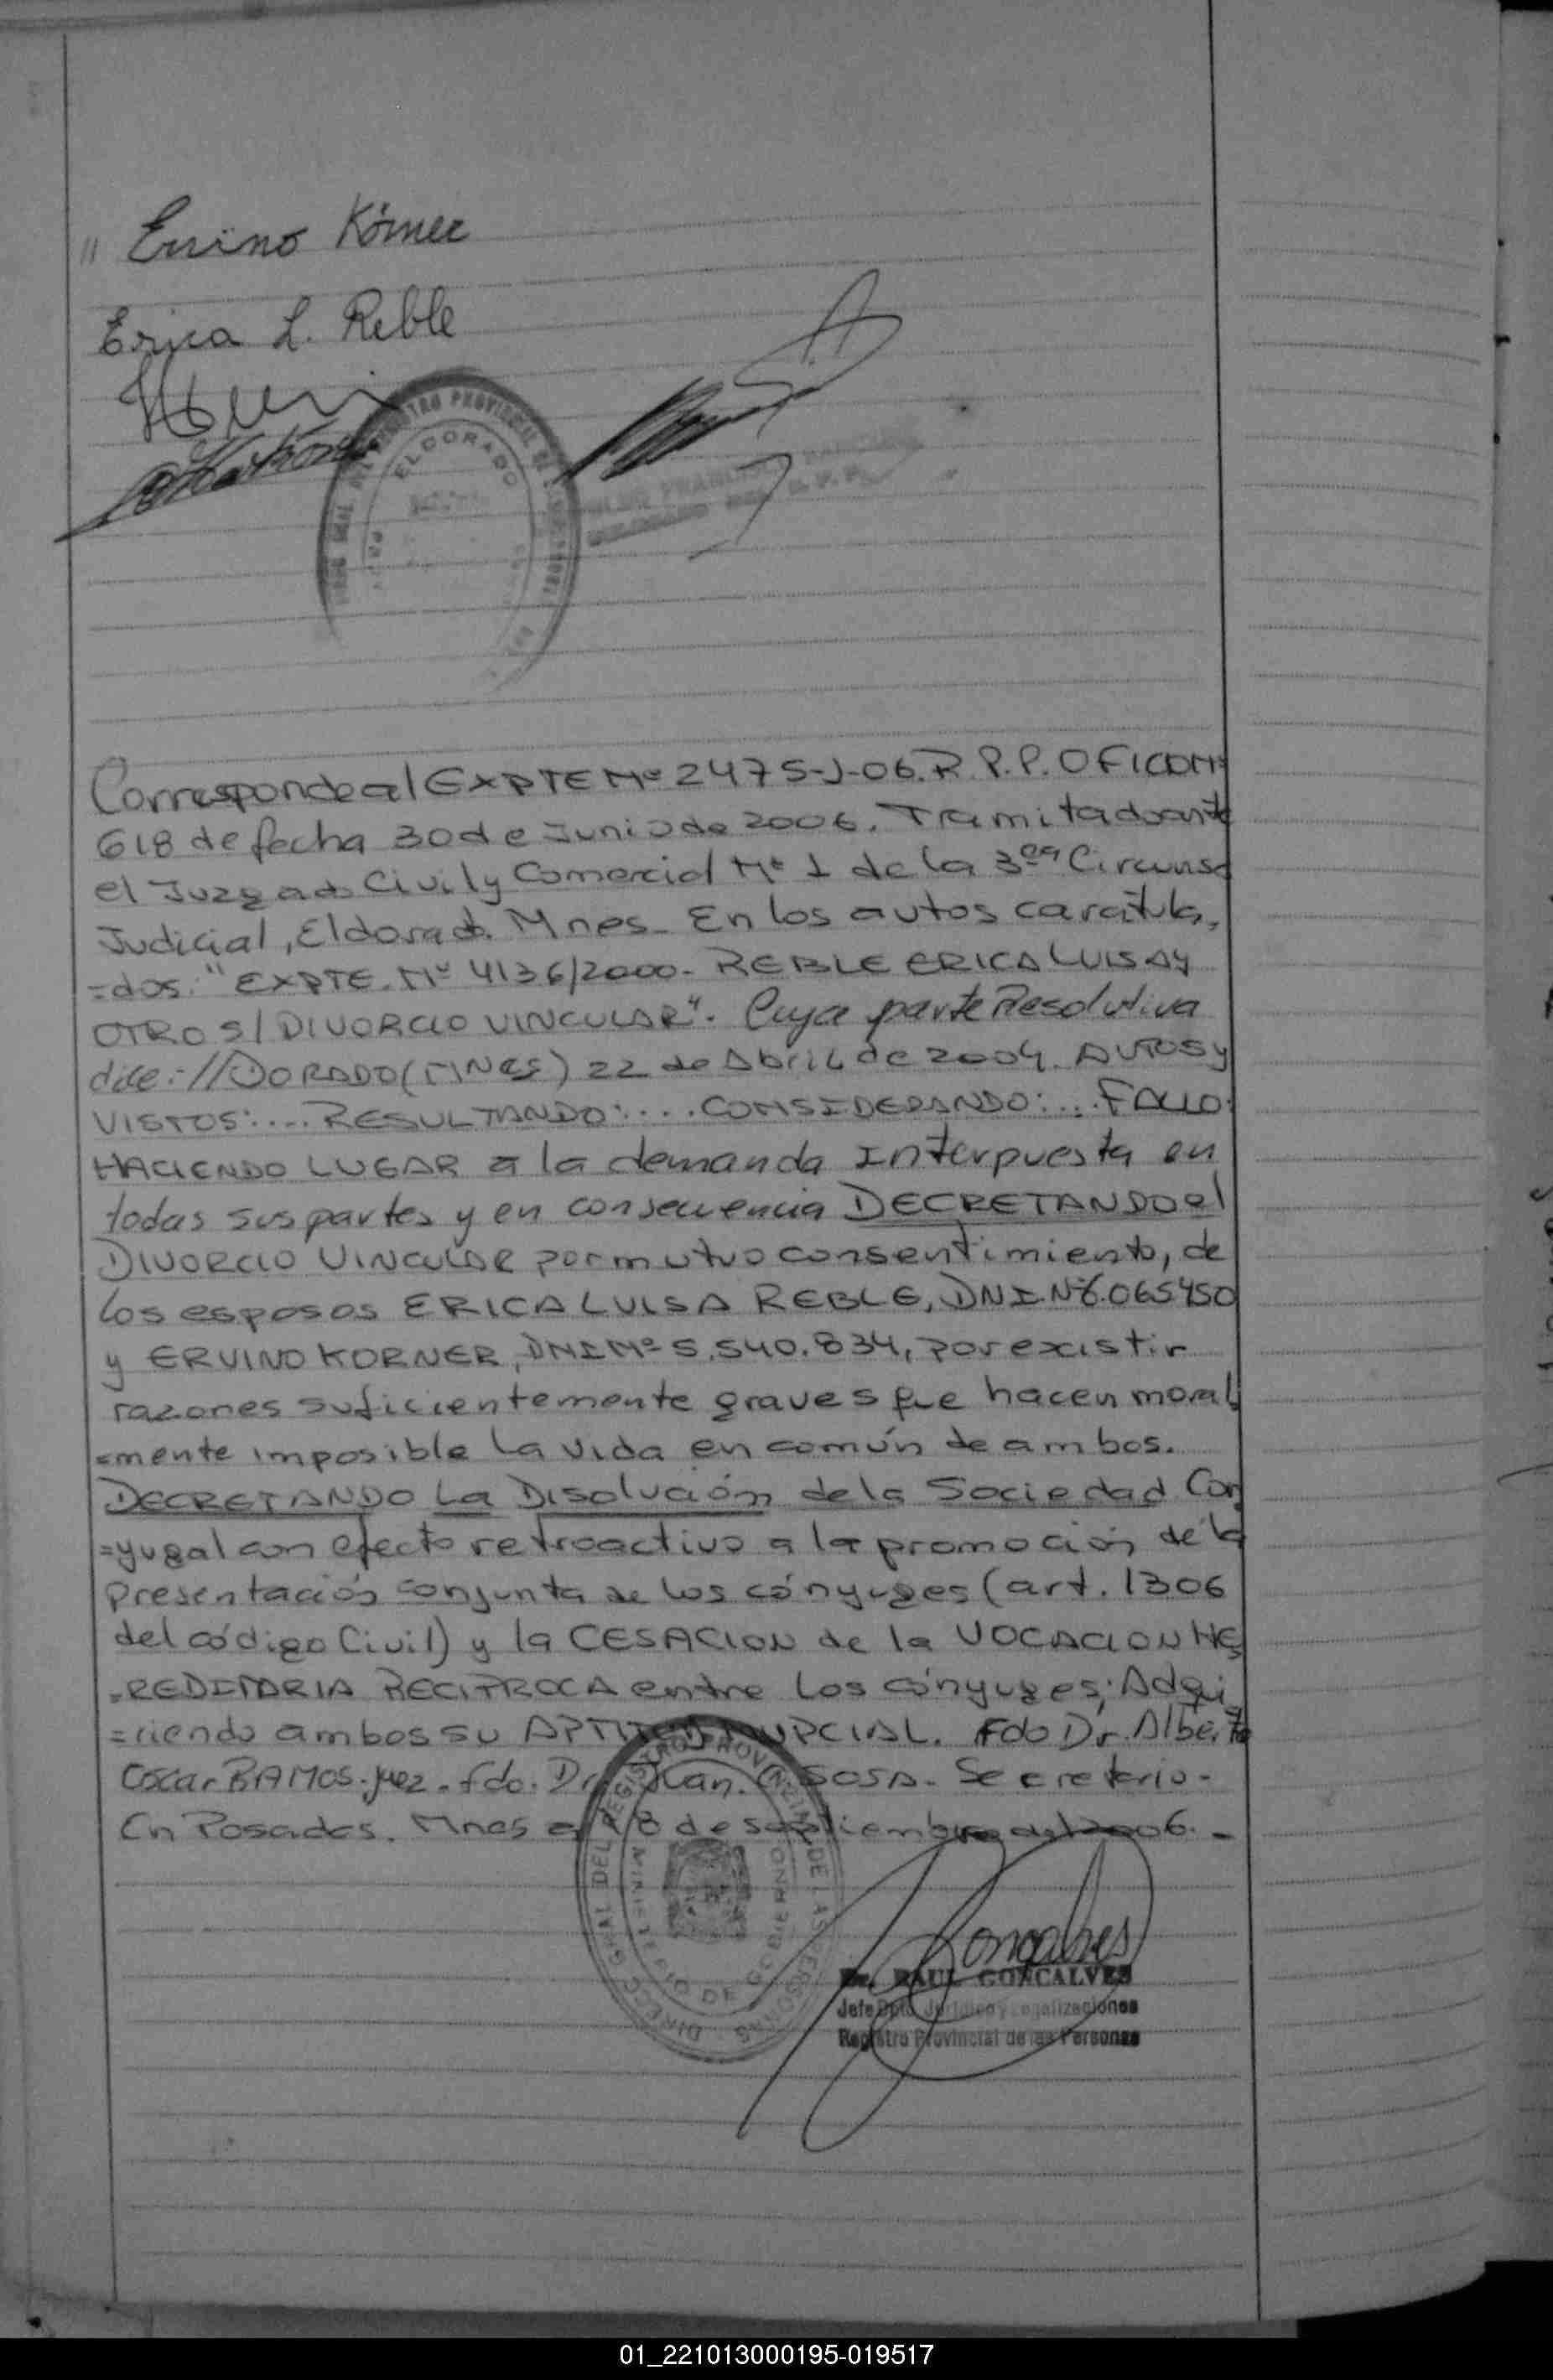 " Ervino Körner
Erica L. Reble
REGISTRO PROVINCIAL DE
ELDORADO
Corresponde al EXPTE Nº 2475-J-06. R.P.P. OFICIO Nº
618 de fecha 30 de Junio de 2006. Tramitado ante
el Juzgado Civil y Comercial Nº 1 de la 3era Circunsc
Judicial, Eldorado. Mnes. En los autos caratula,
=dos: "EXPTE. Nº 4136/2000- REBLE ERICA LUISA y
OTRO S/ DIVORCIO VINCULAR". Cuya parte Resolutiva
dice: //DORADO (MNES) 22 de Abril de 2004. AUTOS y
VISTOS:.... RESULTANDO:.... CONSIDERANDO:... FALLO:
HACIENDO LUGAR a la demanda Interpuesta en
todas sus partes y en consecuencia DECRETANDO el
DIVORCIO VINCULAR por mutuo consentimiento, de
los esposos ERICA LUISA REBLE, DNI. Nº 6.065450
y ERVINO KORNER, DNI Nº 5.540.834, por existir
razones suficientemente graves que hacen moral
=mente imposible la vida en común de ambos.
DECRETANDO La Disolución de la Sociedad Con
=yugal con efecto retroactivo a la promoción de la
presentación conjunta de los cónyuges (art. 1306
del código Civil) y la CESACION de la VOCACION HE
=REDITARIA RECIPROCA entre los cónyuges; Adqui
=riendo ambos su APTITUD NUPCIAL. Fdo Dr. Alberto
Oscar RAMOS. Juez. Fdo. Dr. Juan. C. SOSA. Secretario-
En Posadas. Mnes a 18 de septiembre del 2006. -
DIREC. GRAL. DEL REGISTRO PROVINCIAL DE LAS PERSONAS
MINISTERIO DE GOBIERNO
Goncalves
Dr. RAUL GONCALVES
Jefe Dpto. Jurídico y Legalizaciones
Registro Provincial de las Personas
01_221013000195-019517